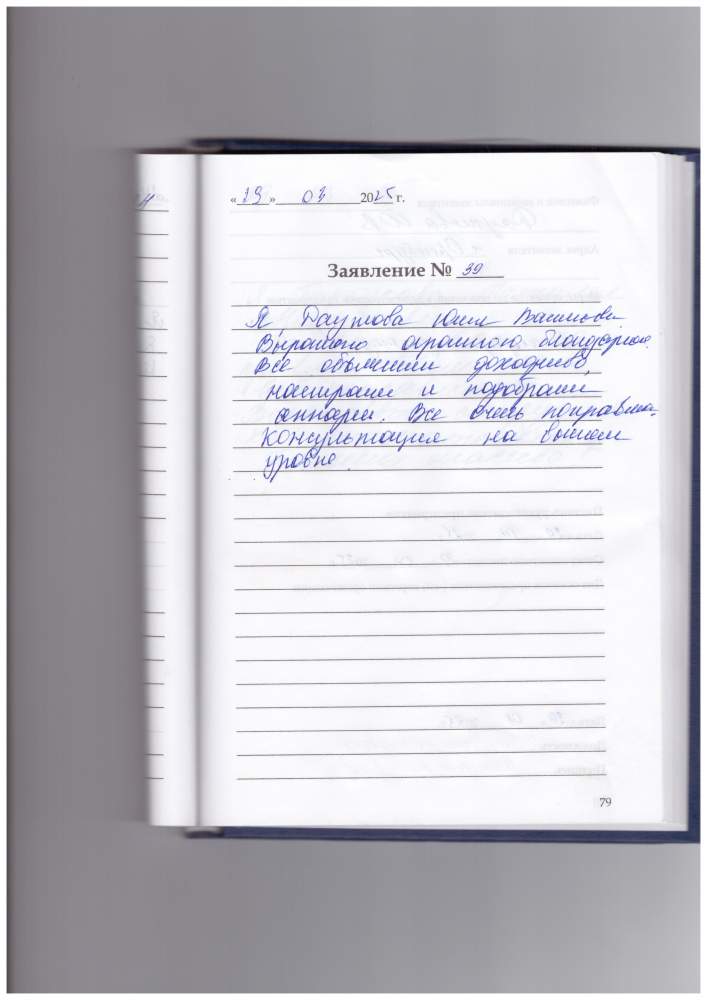 «29» 03 2025 г.
Заявление № 39
Я, Даутова Юлия
Выражаю огромную благодарность.
Все объяснили доходчиво,
настроили и подобрали
аппарат. Все очень понравилось.
Консультация на высшем
уровне.
79